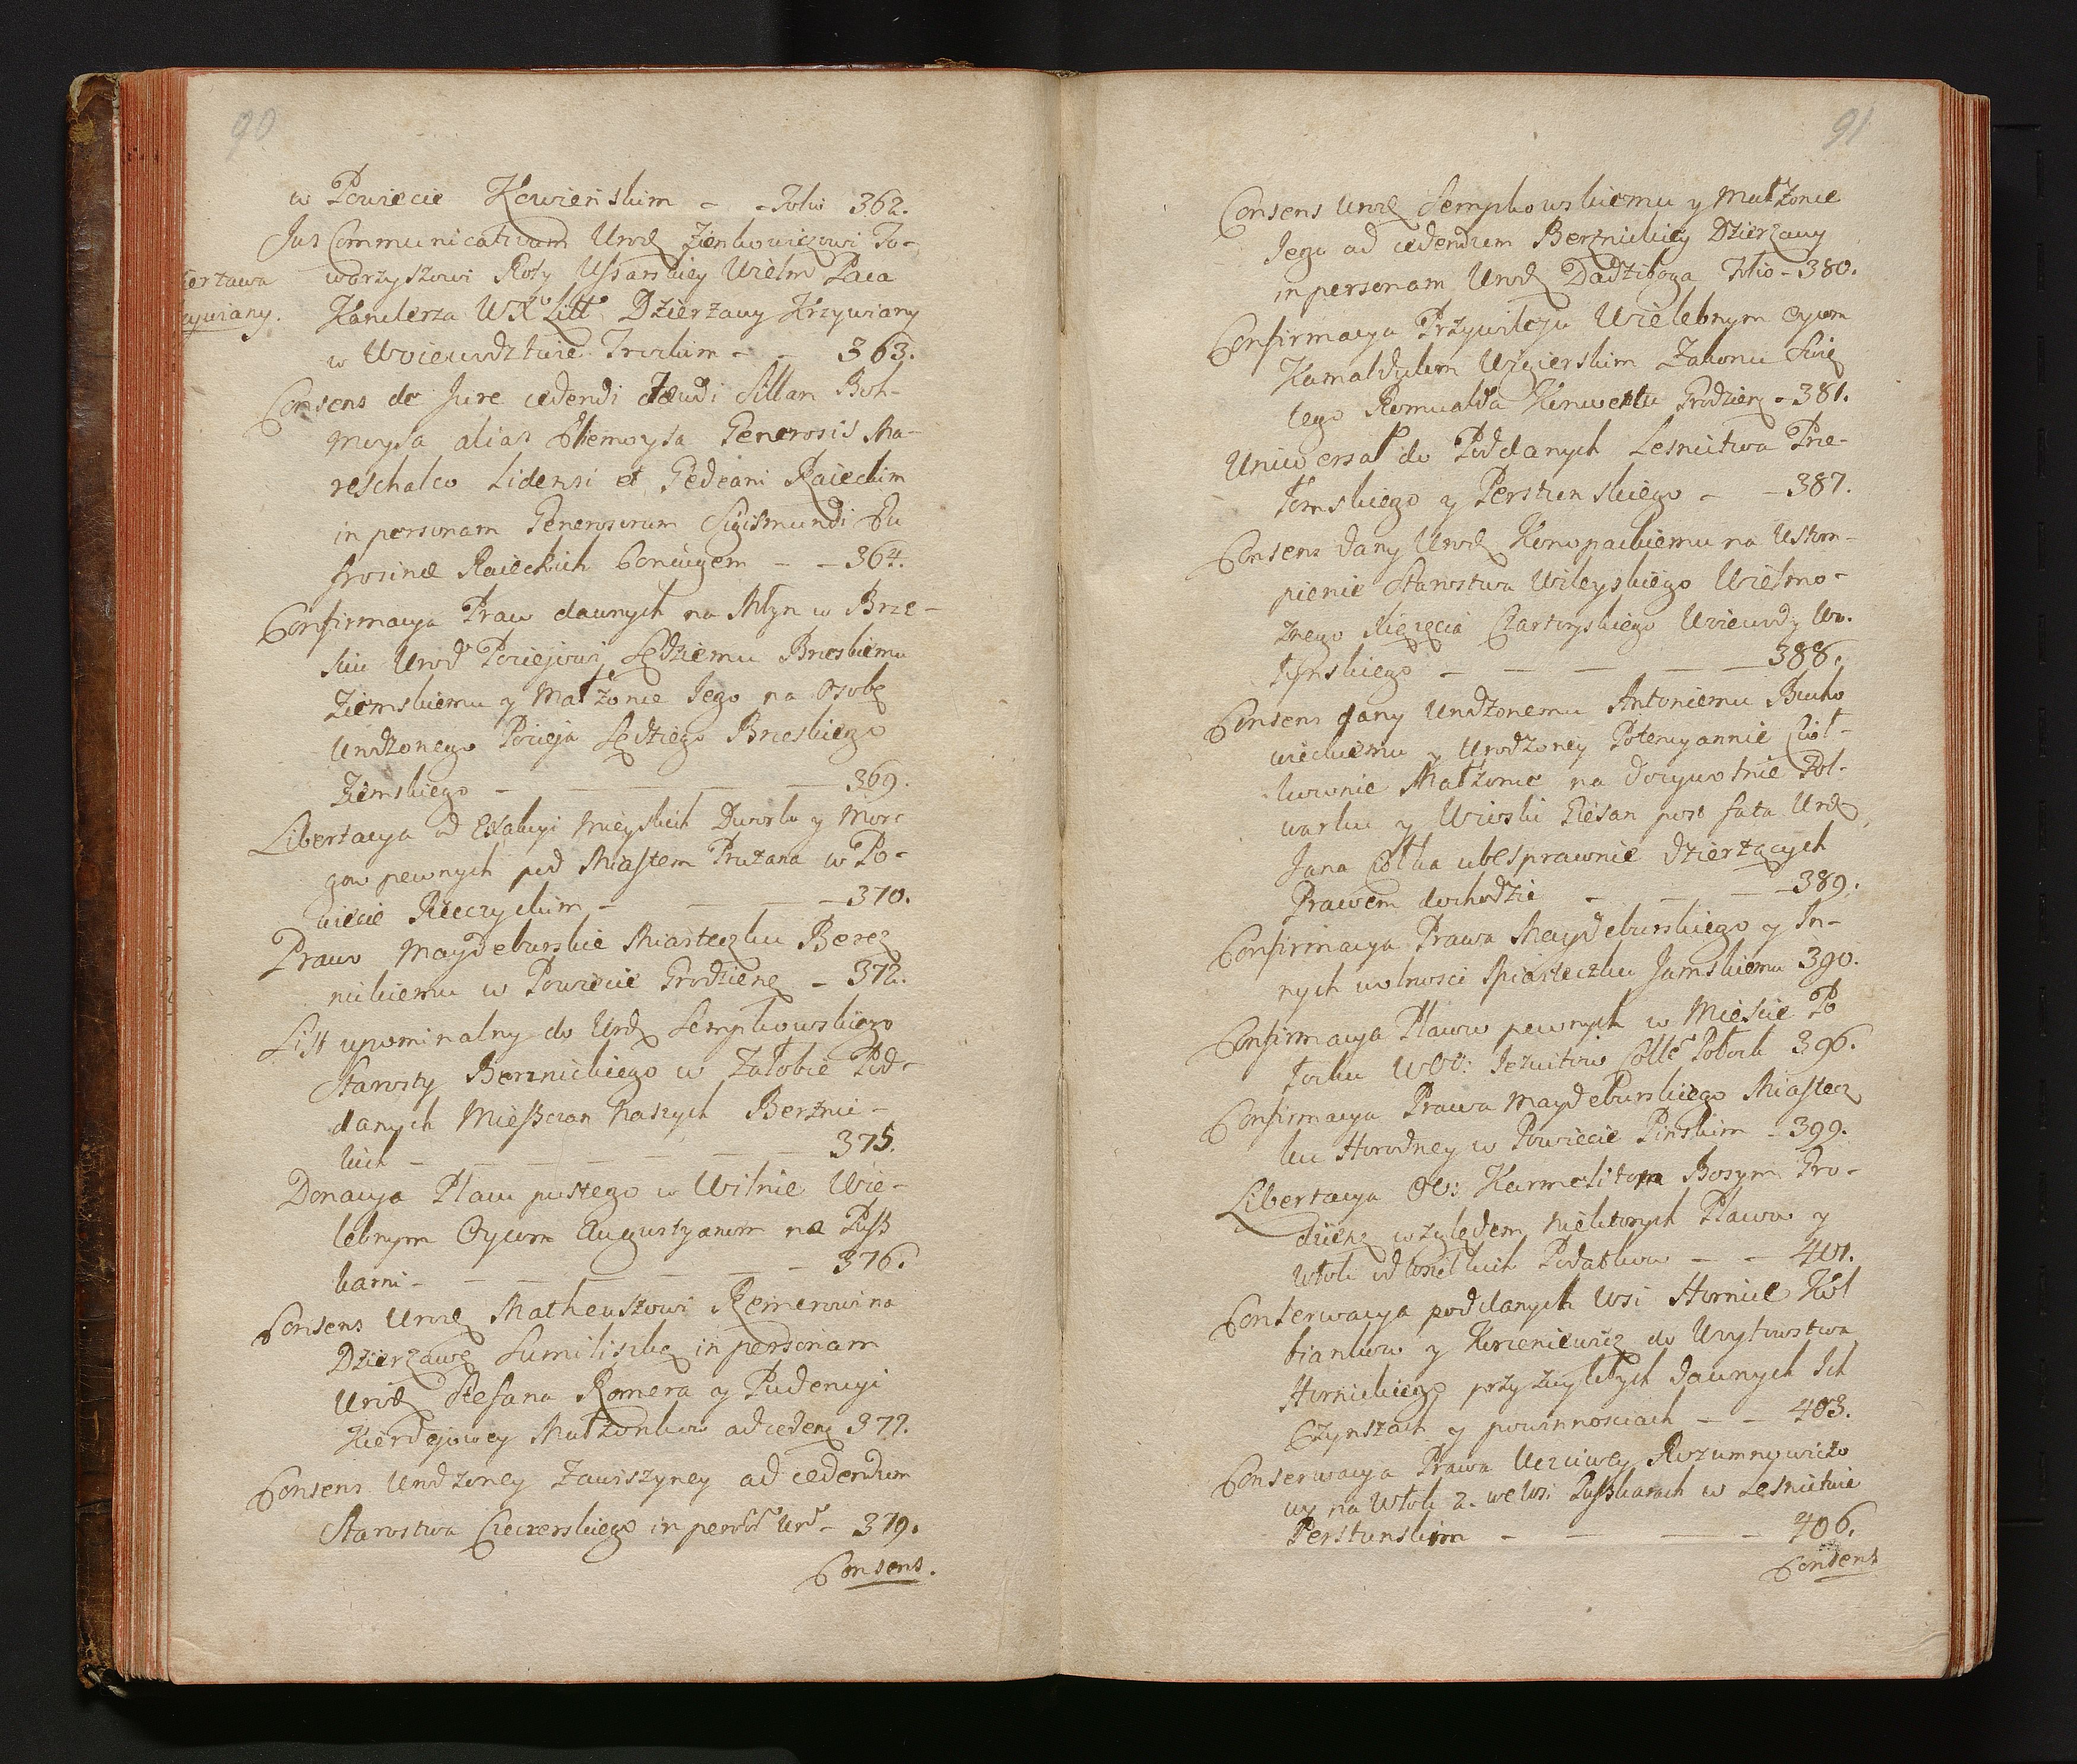 90
w Powiecie Kowieńskim - - Folio 362.
Jus Communicativum Urodz Zienkowiczowi To-
warzyszowi Roty Ussarskiey Wielm Paca
Kanclerza WXLitt Dzierzawy Krzywiany
w Woiewodztwie Trockim - - 363.
Consens de Jure cedendi Sillam Boh-
alias Generosis Ma-
reschalco Lidensi et Gedeani Raieckim
in personam Generosorum Sigismundi Eu
frosinæ Raieckich Coniugem - - 364.
Confirmacya Praw dawnych na Młyn w Brze-
sciu Urod Pociejowi Sędziemu Brzeskiemu
Ziemskiemu y Małżonce Jego na Osobę
Urodzonego Pocieja Sędziego Brzeskiego
Ziemskiego - - - - - 369.
Libertacya od Exakcyi Mieyskich Dworku y Mor-
gow pewnych pod Miastem Prużana w Po-
wiecie Rzeczyckim - - - - 370.
Prawo Maydeburskie Miasteczku Berez
nickiemu w Powiecie Grodzieńz - 372.
List upominalny do Urodz Sempkowskiego
Starosty Berznickiego w Załobie Pod-
danych Mießczan Naszych Berżnic-
kich - - - - - - 375.
Donacya Placu pustego w Wilnie Wie-
lebnym Oycom Augustyanom na Puß
karni - - - - - - 376.
Consens Urodz Matheuszowi Remerowi na
Dzierzawę Sumiliszkę in personam
Urodz Stefana Romera y Pudencyi
Kierdejowey Małzonkow ad cedenz 377.
Consens Urodzoney Zawiszyney ad cedendum
Starostwa Czeczerskiego in perso Urod - 379.
Consens.
ierzawa
zywiany.
91
Consens Urodz Sempkowskiemu y Małżonce
Jego ad cedendum Berznickiey Dzierzawy
in personam Urodz Dadziboga Folio - 380.
Confirmacya Przywileju Wielebnym Oycom
Kamaldulom Wigierskim Zakonu Swię
tego Romualda Konwentu Grodzienz - 381.
Uniwersał do Poddanych Lesnictwa Prze-
łomskiego y Perstunskiego - - 387.
Consens dany Urodz Konopackiemu na Ustom-
pienie Starostwa Wileyskiego Wielmo-
żnego Xiężęcia Czartoryskiego Woiewody Wo-
łynskiego - - - - - 388.
Consens dany Urodzonemu Antoniemu Bucho
wieckiemu y Urodzoney Potencyannie Cioł-
kownie Małżonce na dożywotnie Fol-
warku y Wioski Piesan post fata Urodz
Jana Ciołka ubesprawnie dzierżących
Prawem dochodzic - - - - 389.
Confirmacya Prawa Maydeburskiego y In-
nych wolnosci Miasteczku Jamskiemu 390.
Confirmacya Placow pewnych w Mieście Po
łocku WOO: Jezuitow Colle Połock 396.
Confirmacya Prawa Maydeburskiego Miastecz
ku Horodney w Powiecie Pinskim - 399.
Libertacya OO: Karmelitom Bosym Gro-
dzienz względem niektorych Placow y
Włok od wszelkich Podatkow - - 401.
Conserwacya poddanych wsi Hornic Koł
biankow y Korzeniewicz do Woytowstwa
Hornickiego przy zwykłych dawnych Ich
Czynszach y powinnosciach - - 403.
Conserwacya Prawa Uczciwey Rozumnowiczo
wey na Włok 2. we wsi Pußkarach w Lesnictwie
Perstunskim - - - - 406.
Consens